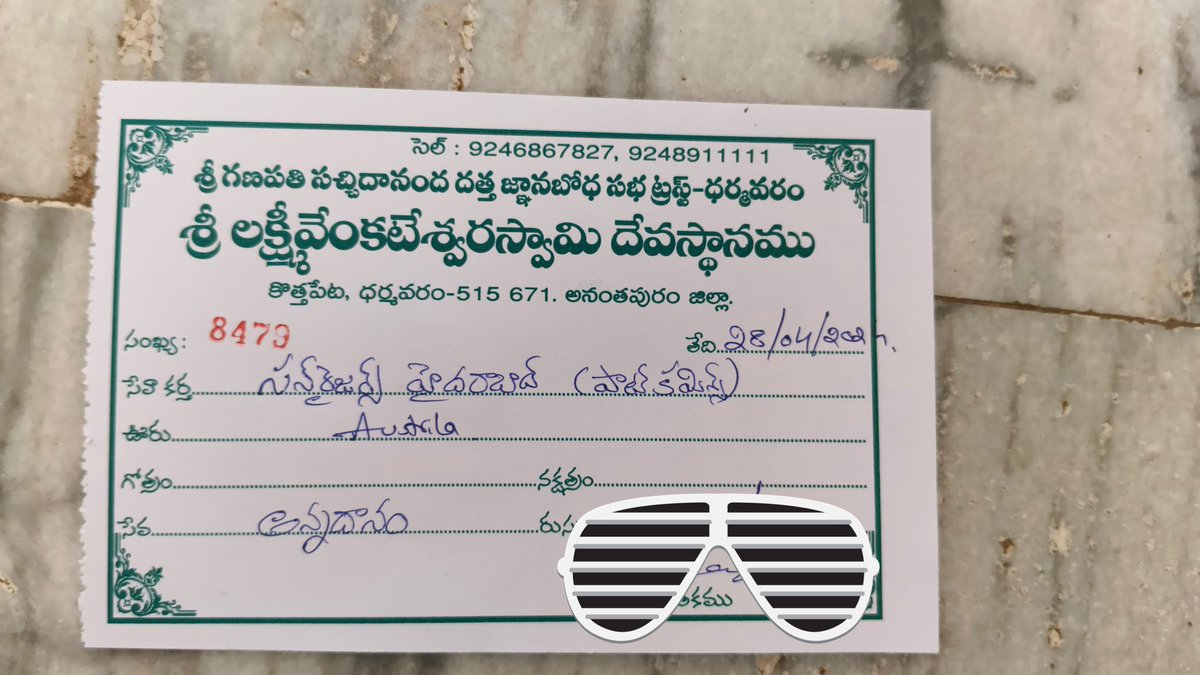 సెల్ : 9246867827, 9248911111
శ్రీ గణపతి సచ్చిదానంద దత్త జ్ఞానబోధ సభ ట్రస్ట్-ధర్మవరం
శ్రీ లక్ష్మీవేంకటేశ్వరస్వామి దేవస్థానము
కొత్తపేట, ధర్మవరం-515 671. అనంతపురం జిల్లా.
సంఖ్య: 8479 తేది 28/04/202
సేవా కర్త సన్‌రైజర్స్ హైదరాబాద్ (పాట్ కమిన్స్)
ఊరు
గోత్రం నక్షత్రం
సేవ అన్నదానం రుసు